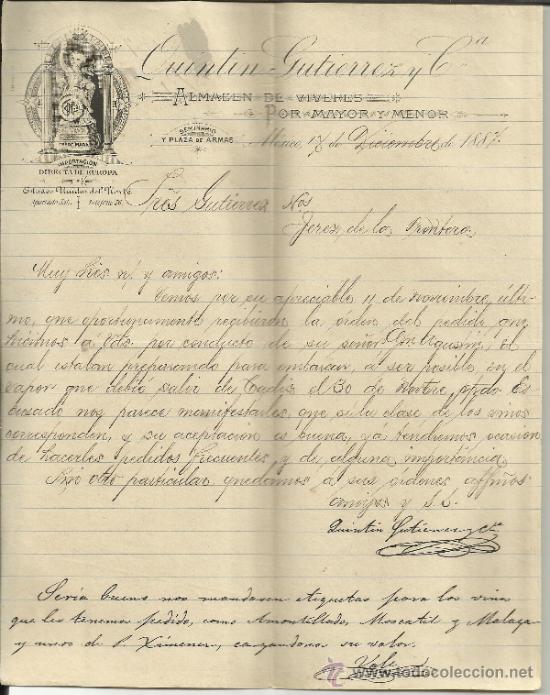 Quintin Gutierrez y Cª
ALMACEN DE VIVERES
POR MAYOR Y MENOR
SEMINARIO
Y PLAZA DE ARMAS
México, 17 de Diciembre de 1887.
IMPORTACION
DIRECTA DE EUROPA
Y
Estados Unidos del Norte
Sres Gutierrez Hos
Jerez de la Frontera
Muy Sres n/ y amigos:
Vemos por su apreciable 11 de noviembre últi-
mo, que oportunamente recibieron la orden del pedido que
hicimos a Vds. por conducto de su señor Gon, el
cual estaban preparando para embarcar, a ser posible, en el
vapor que debió salir de Cadiz el 30 de Es-
cusado nos parece manifestarles, que si la clase de los vinos
corresponden, y su aceptacion es buena, ya tendremos ocasion
de hacerles pedidos frecuentes y de alguna importancia.
Sin otro particular quedamos a sus ordenes affmos
amigos y S.S.
Quintin Gutierrez y Cia
Seria bueno nos mandasen etiquetas para los vinos
que les tenemos pedido, como Amontillado, Moscatel y Malaga
y unas de P. Ximenez, cargandonos su valor.
Vale
todocoleccion.net